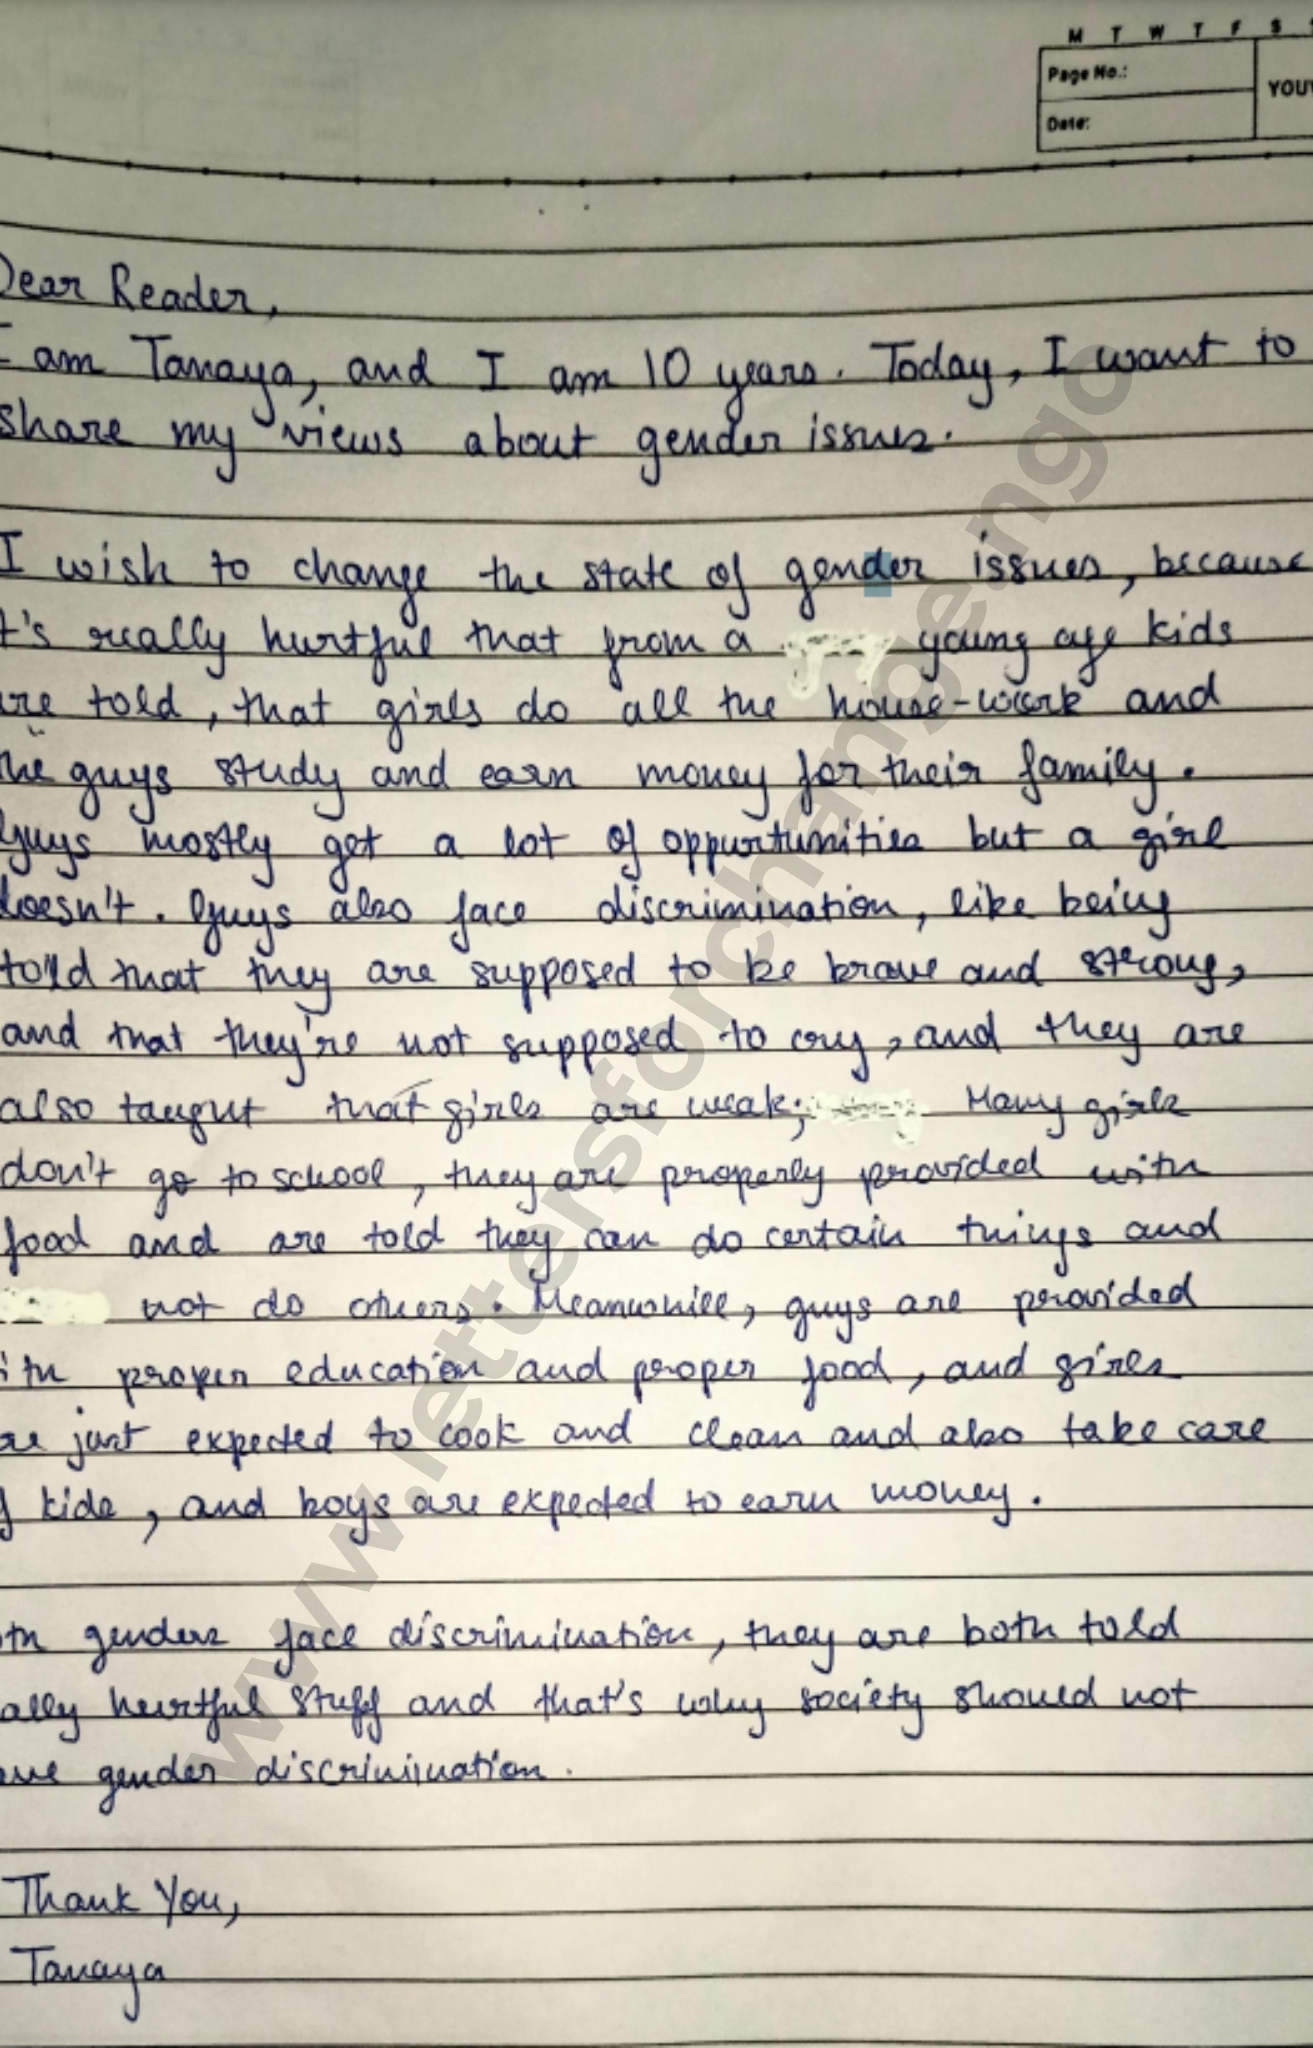 M T W T F S
Page No.:
YOU
Date:
Dear Reader,
I am Tanaya, and I am 10 years. Today, I want to
share my views about gender issues.
I wish to change the state of gender issues, because
t's really hurtful that from a young age kids
re told, that girls do all the house-work and
he guys study and earn money for their family.
Guys mostly get a lot of oppurtunities but a girl
doesn't. Guys also face discrimination, like being
told that they are supposed to be brave and strong,
and that they're not supposed to cry, and they are
also taught that girls are weak; Many girls
don't go to school, they are properly provided with
food and are told they can do certain things and
not do others. Meanwhile, guys are provided
ith proper education and proper food, and girls
re just expected to cook and clean and also take care
f kids, and boys are expected to earn money.
oth genders face discrimination, they are both told
ally hurtful stuff and that's why society should not
ave gender discrimination.
Thank You,
Tanaya
www.lettersforchange.ngo